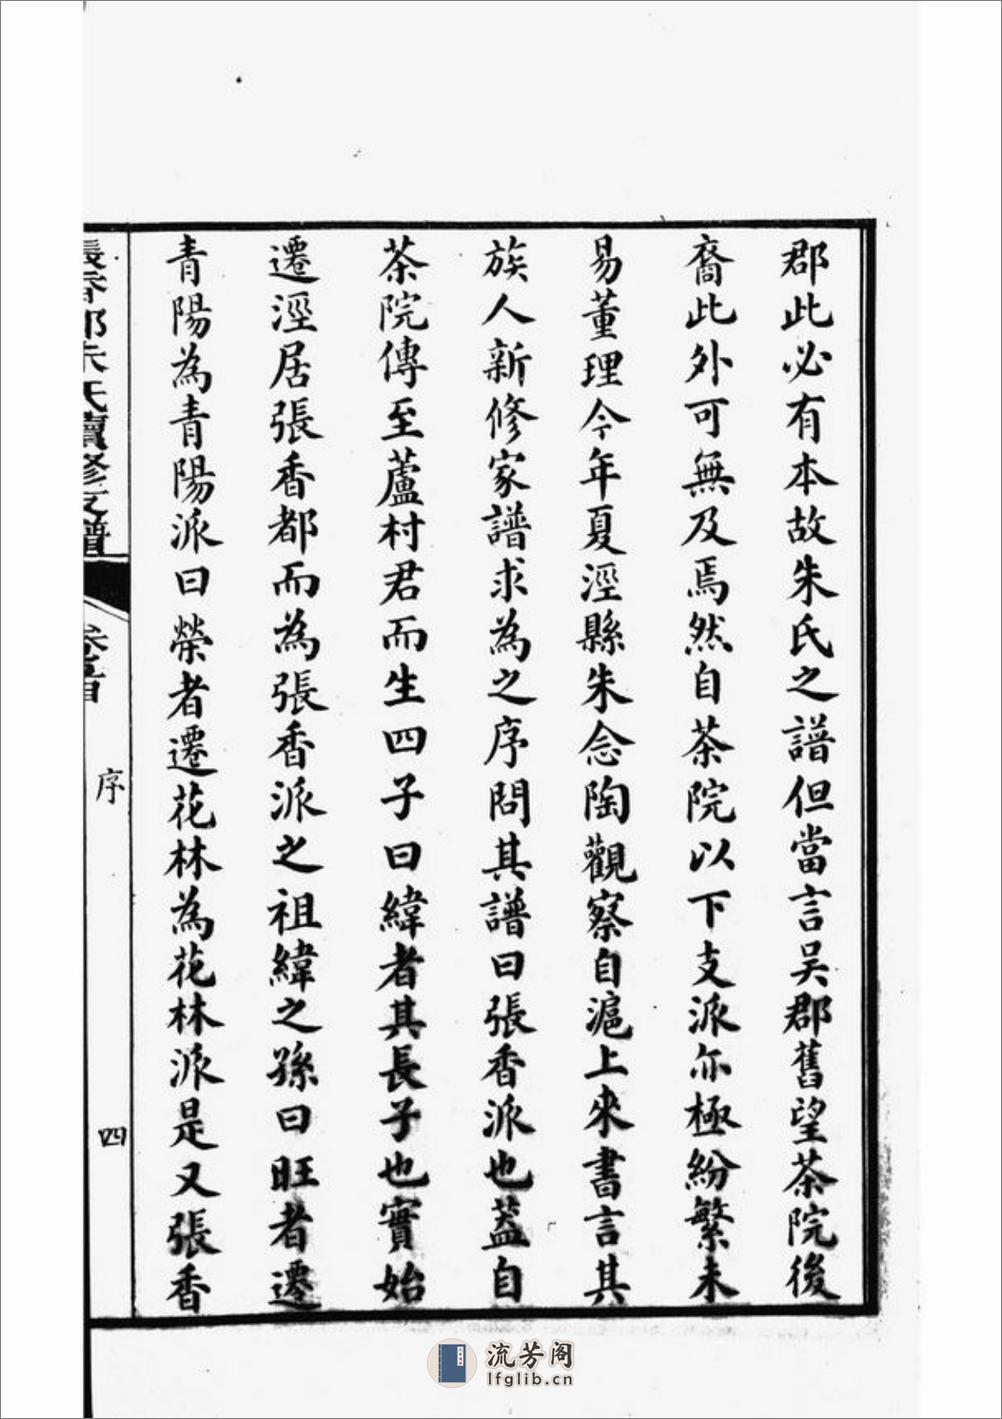 郡此必有本故朱氏之譜但當言吳郡舊望茶院後
裔此外可無及焉然自茶院以下支派亦極紛繁未
易董理今年夏涇縣朱念陶觀察自滬上來書言其
族人新修家譜求為之序問其譜曰張香派也蓋自
茶院傳至蘆村君而生四子曰緯者其長子也實始
遷涇居張香都而為張香派之祖緯之孫曰旺者遷
青陽為青陽派曰榮者遷花林為花林派是又張香
張香都朱氏續修支譜
卷首
序
四
流芳阁
lfglib.cn